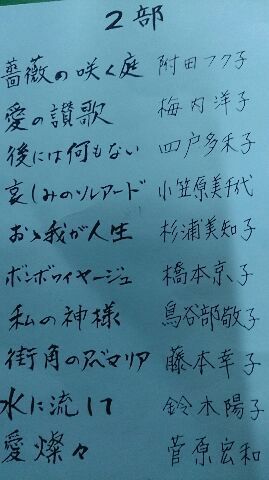 2部
薔薇の咲く庭 附田フク子
愛の讃歌 梅内洋子
後には何もない 四戸多禾子
哀しみのソレアード 小笠原美千代
おゝ我が人生 杉浦美知子
ボンボワイヤージュ 橋本京子
私の神様 鳥谷部敬子
街角のアベマリア 藤本幸子
水に流して 鈴木陽子
愛燦々 菅原宏和